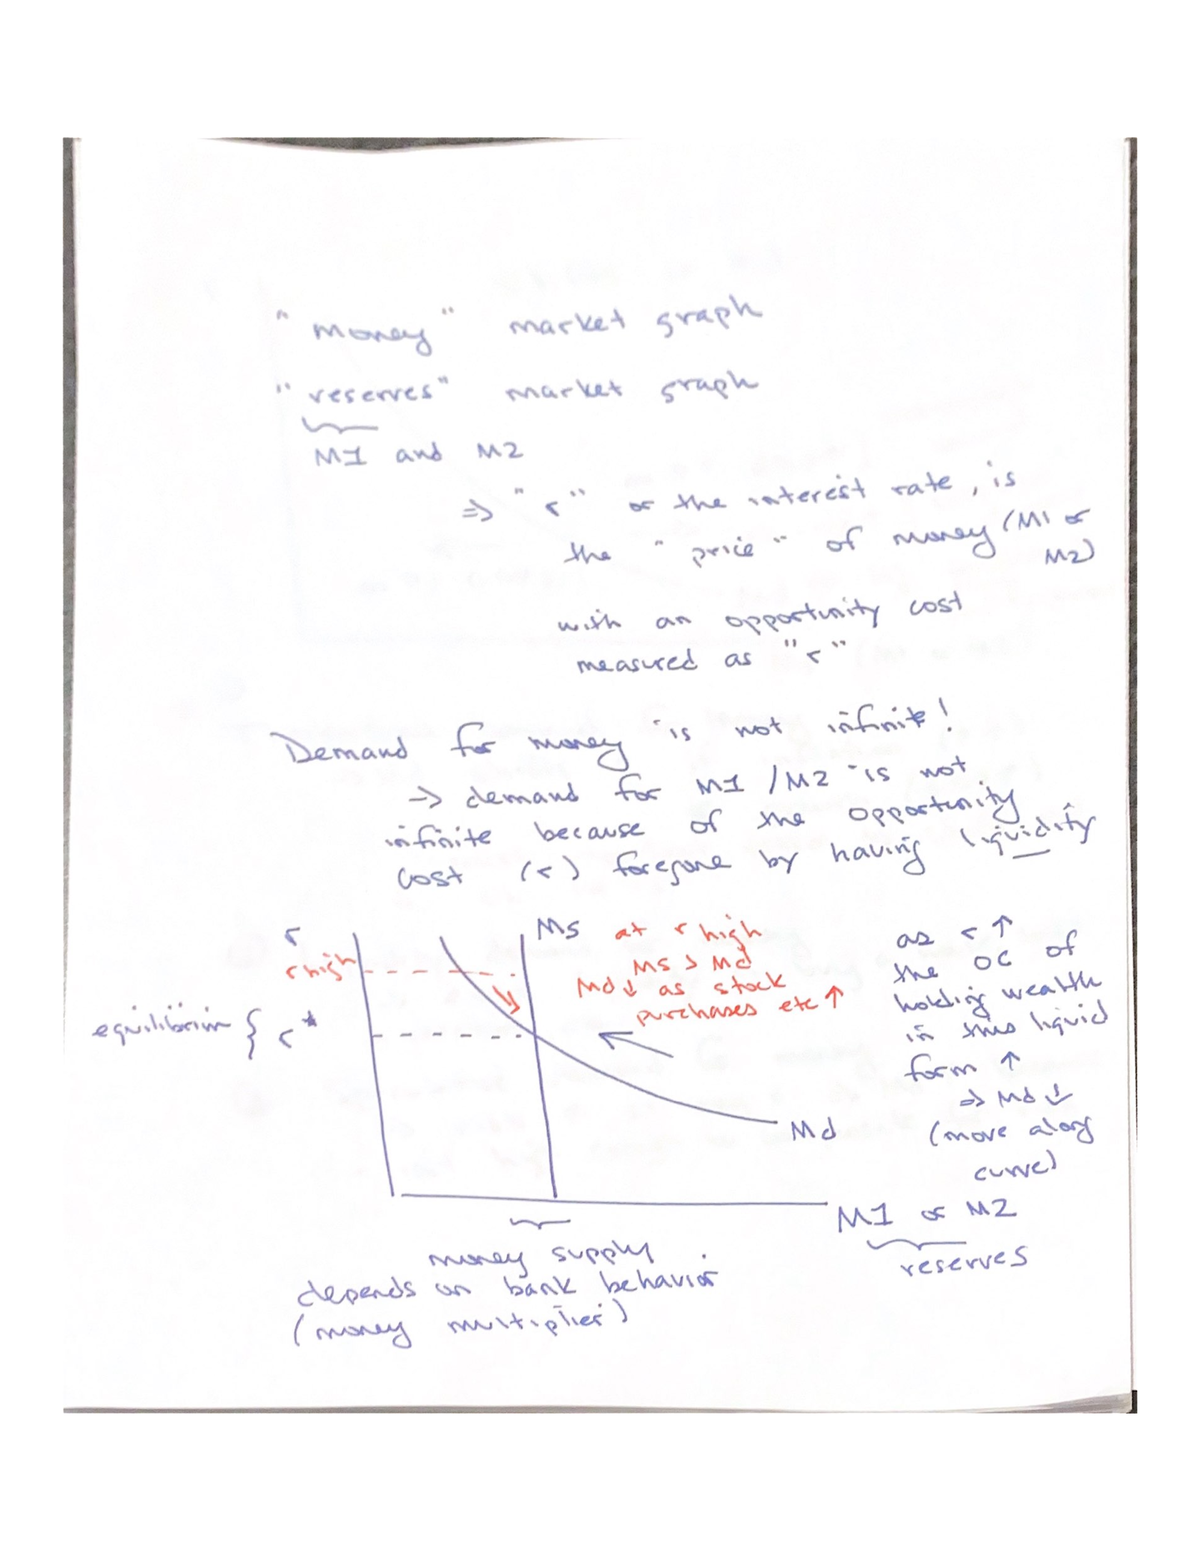 "money" market graph
"reserves" market graph
M1 and M2
⇒ "r" or the interest rate, is
the "price" of money (M1 or
M2)
with an opportunity cost
measured as "r"
Demand for money is not infinite!
→ demand for M1 / M2 is not
infinite because of the opportunity
cost (r) foregone by having liquidity
r
r high
equilibrium { r*
Ms
at r high
Ms > Md
Md ↓ as stock
purchases etc ↑
as r ↑
the OC of
holding wealth
in this liquid
form ↑
⇒ Md ↓
(move along
curve)
Md
M1 or M2
reserves
money supply
depends on bank behavior
(money multiplier)